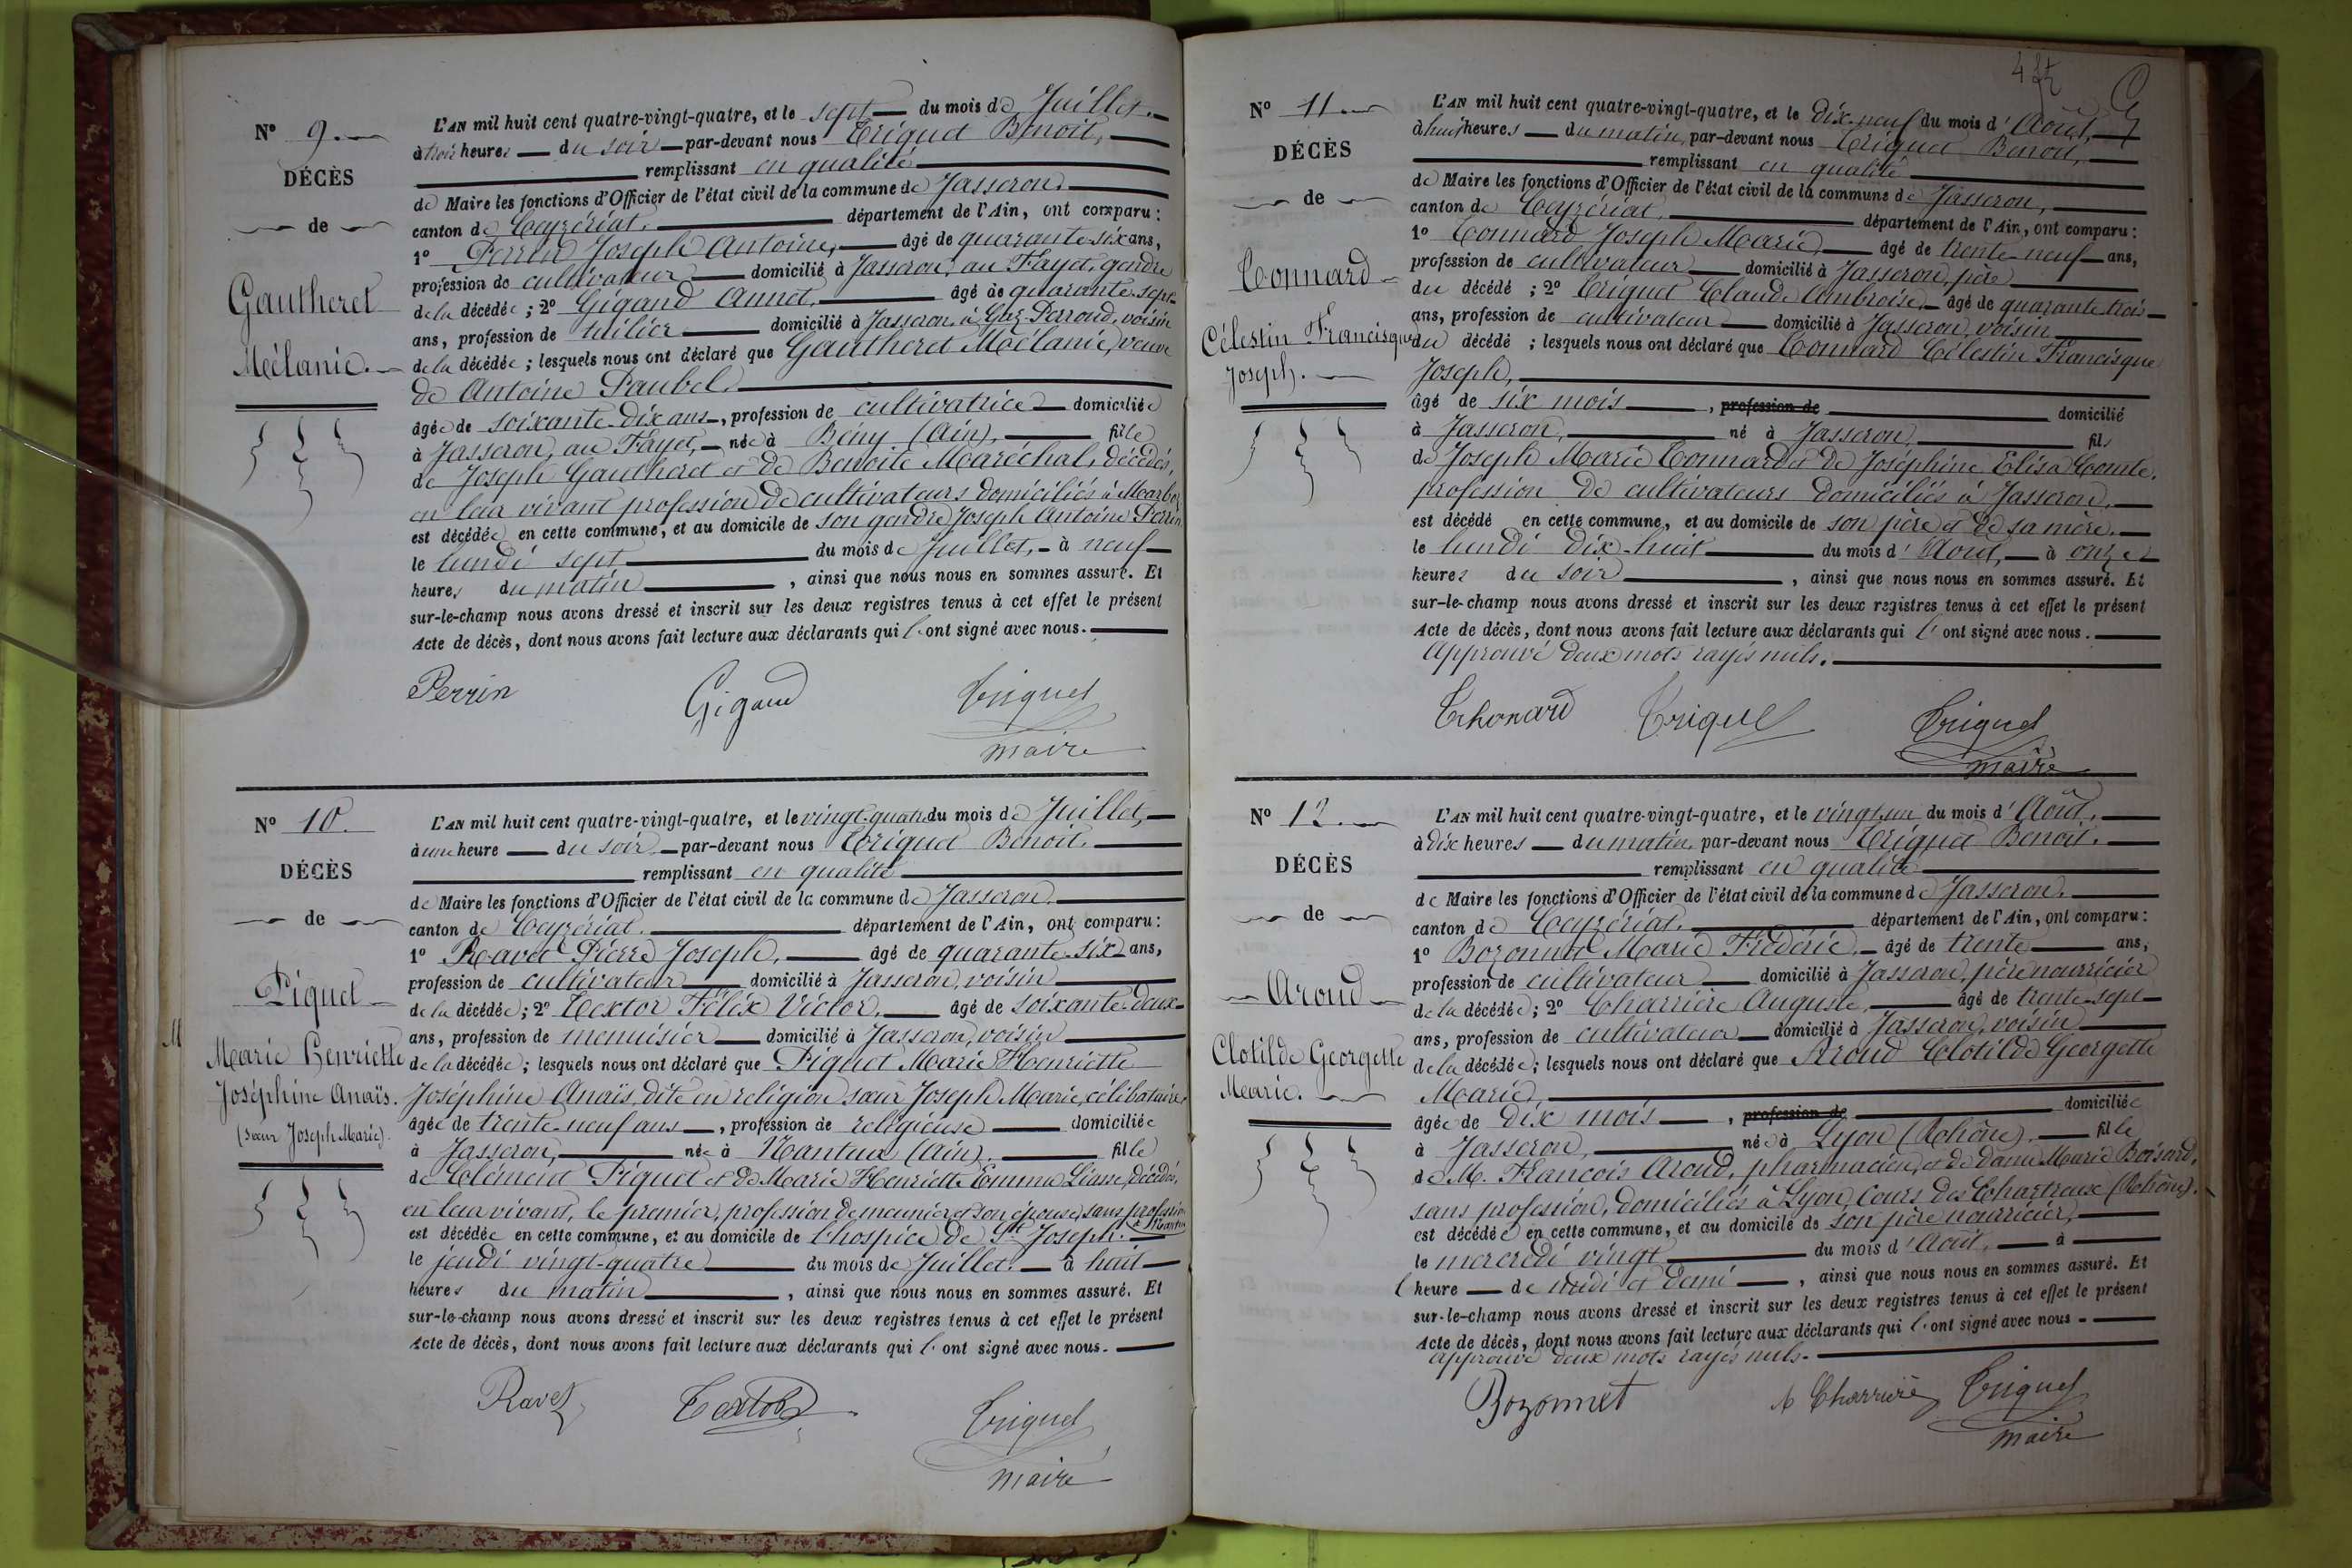 N° 9.
DÉCÈS
de
Gautheret
Mélanie.
L'AN mil huit cent quatre-vingt-quatre, et le sept du mois de Juillet.
à trois heures du soir par-devant nous Triquet Benoit,
remplissant en qualité
de Maire les fonctions d'Officier de l'état civil de la commune de Jasseron.
canton de Ceyzériat. département de l'Ain, ont comparu:
1° Perrin Joseph Antoine, âgé de quarante-six ans,
profession de cultivateur domicilié à Jasseron, au Fayet, gendre
de la décédée; 2° Gigand Annet, âgé de quarante-sept
ans, profession de tuilier domicilié à Jasseron, à Perroud, voisin
de la décédée; lesquels nous ont déclaré que Gautheret Mélanie, veuve
de Antoine Paubel.
âgée de soixante-dix ans, profession de cultivatrice domiciliée
à Jasseron, au Fayet, née à Bény (Ain), fille
de Joseph Gautheret et de Benoite Maréchal, décédés,
en leur vivant profession de cultivateurs domiciliés à Marboz
est décédée en cette commune, et au domicile de son gendre Joseph Antoine Perrin
le lundi sept du mois de Juillet, à neuf
heures du matin, ainsi que nous nous en sommes assuré. Et
sur-le-champ nous avons dressé et inscrit sur les deux registres tenus à cet effet le présent
Acte de décès, dont nous avons fait lecture aux déclarants qui l'ont signé avec nous.
Perrin Gigand Triquet
maire
N° 10.
DÉCÈS
de
Piquet
Marie Henriette
Joséphine Anaïs.
(Sœur Joseph Marie).
M
L'AN mil huit cent quatre-vingt-quatre, et le vingt-quatre du mois de Juillet,
à une heure du soir par-devant nous Triquet Benoit.
remplissant en qualité
de Maire les fonctions d'Officier de l'état civil de la commune de Jasseron.
canton de Ceyzériat. département de l'Ain, ont comparu:
1° Ravet Pierre Joseph, âgé de quarante-six ans,
profession de cultivateur domicilié à Jasseron, voisin
de la décédée; 2° Textor Félix Victor, âgé de soixante-deux
ans, profession de menuisier domicilié à Jasseron, voisin
de la décédée; lesquels nous ont déclaré que Piquet Marie Henriette
Joséphine Anaïs, dite en religion sœur Joseph Marie, célibataire,
âgée de trente-neuf ans, profession de religieuse domiciliée
à Jasseron, née à Nantua (Ain). fille
de Clément Piquet et de Marie Henriette Emma Liasse, décédés,
en leur vivant, le premier, profession de meunier et son épouse, sans profession à Nantua
est décédée en cette commune, et au domicile de l'hospice de St Joseph.
le jeudi vingt-quatre du mois de Juillet. à huit
heures du matin, ainsi que nous nous en sommes assuré. Et
sur-le-champ nous avons dressé et inscrit sur les deux registres tenus à cet effet le présent
Acte de décès, dont nous avons fait lecture aux déclarants qui l'ont signé avec nous.
Ravet Textor Triquet
maire
N° 11.
DÉCÈS
de
Tonnard
Célestin Francisque
Joseph.
L'AN mil huit cent quatre-vingt-quatre, et le dix-neuf du mois d'Août,
à huit heures du matin, par-devant nous Triquet Benoit,
remplissant en qualité
de Maire les fonctions d'Officier de l'état civil de la commune de Jasseron,
canton de Ceyzériat, département de l'Ain, ont comparu:
1° Tonnard Joseph Marie, âgé de trente-neuf ans,
profession de cultivateur domicilié à Jasseron, père
du décédé; 2° Triquet Claude Ambroise, âgé de quarante-trois
ans, profession de cultivateur domicilié à Jasseron, voisin
du décédé; lesquels nous ont déclaré que Tonnard Célestin Francisque
Joseph,
âgé de six mois, profession de domicilié
à Jasseron, né à Jasseron, fils
de Joseph Marie Tonnard et de Joséphine Elisa Comte.
profession de cultivateurs domiciliés à Jasseron.
est décédé en cette commune, et au domicile de son père et de sa mère.
le lundi dix-huit du mois d'Août, à onze
heures du soir, ainsi que nous nous en sommes assuré. Et
sur-le-champ nous avons dressé et inscrit sur les deux registres tenus à cet effet le présent
Acte de décès, dont nous avons fait lecture aux déclarants qui l'ont signé avec nous.
Approuvé deux mots rayés nuls.
Thonard Triquet Triquet
maire
N° 12.
DÉCÈS
de
Aroud
Clotilde Georgette
Marie.
L'AN mil huit cent quatre-vingt-quatre, et le vingt-un du mois d'Août.
à dix heures du matin, par-devant nous Triquet Benoit.
remplissant en qualité
de Maire les fonctions d'Officier de l'état civil de la commune de Jasseron.
canton de Ceyzériat. département de l'Ain, ont comparu:
1° Bozonnet Marie Frédéric. âgé de trente ans,
profession de cultivateur domicilié à Jasseron, père nourricier
de la décédée; 2° Charrière Auguste, âgé de trente-sept
ans, profession de cultivateur domicilié à Jasseron, voisin
de la décédée; lesquels nous ont déclaré que Aroud Clotilde Georgette
Marie,
âgée de dix mois, profession de domiciliée
à Jasseron, née à Lyon (Rhône). fille
de M. François Aroud, pharmacien, et de dame Marie Boisard,
sans profession, domiciliés à Lyon, Cours des Chartreux (Rhône).
est décédée en cette commune, et au domicile de son père nourricier,
le mercredi vingt du mois d'Août, à
l'heure de midi et demi, ainsi que nous nous en sommes assuré. Et
sur-le-champ nous avons dressé et inscrit sur les deux registres tenus à cet effet le présent
Acte de décès, dont nous avons fait lecture aux déclarants qui l'ont signé avec nous
Approuvé deux mots rayés nuls.
Bozonnet A Charrière Triquet
maire